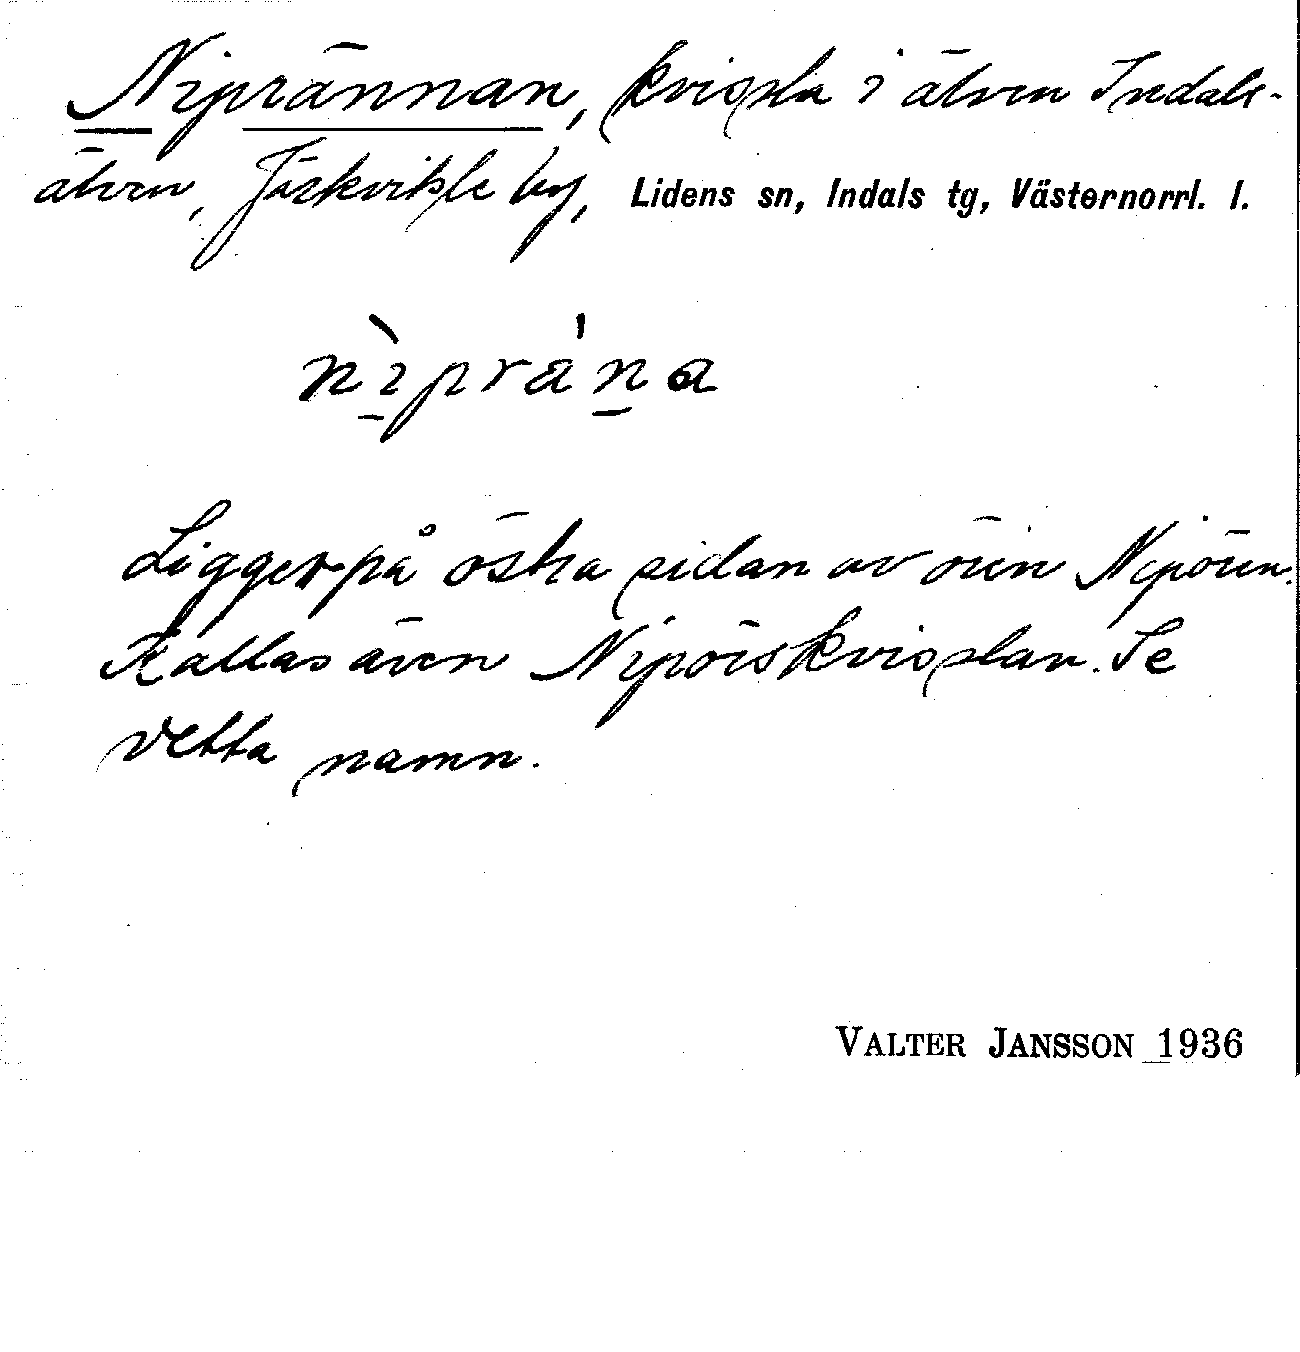 Niprännan, kvissla i älven Indals-
älven, Järkvitsle by, Lidens sn, Indals tg, Västernorrl. l.
nìprä́na
Ligger på östra sidan av ören Nipören.
Kallas även Nipörskvisslan. Se
detta namn.
VALTER JANSSON 1936